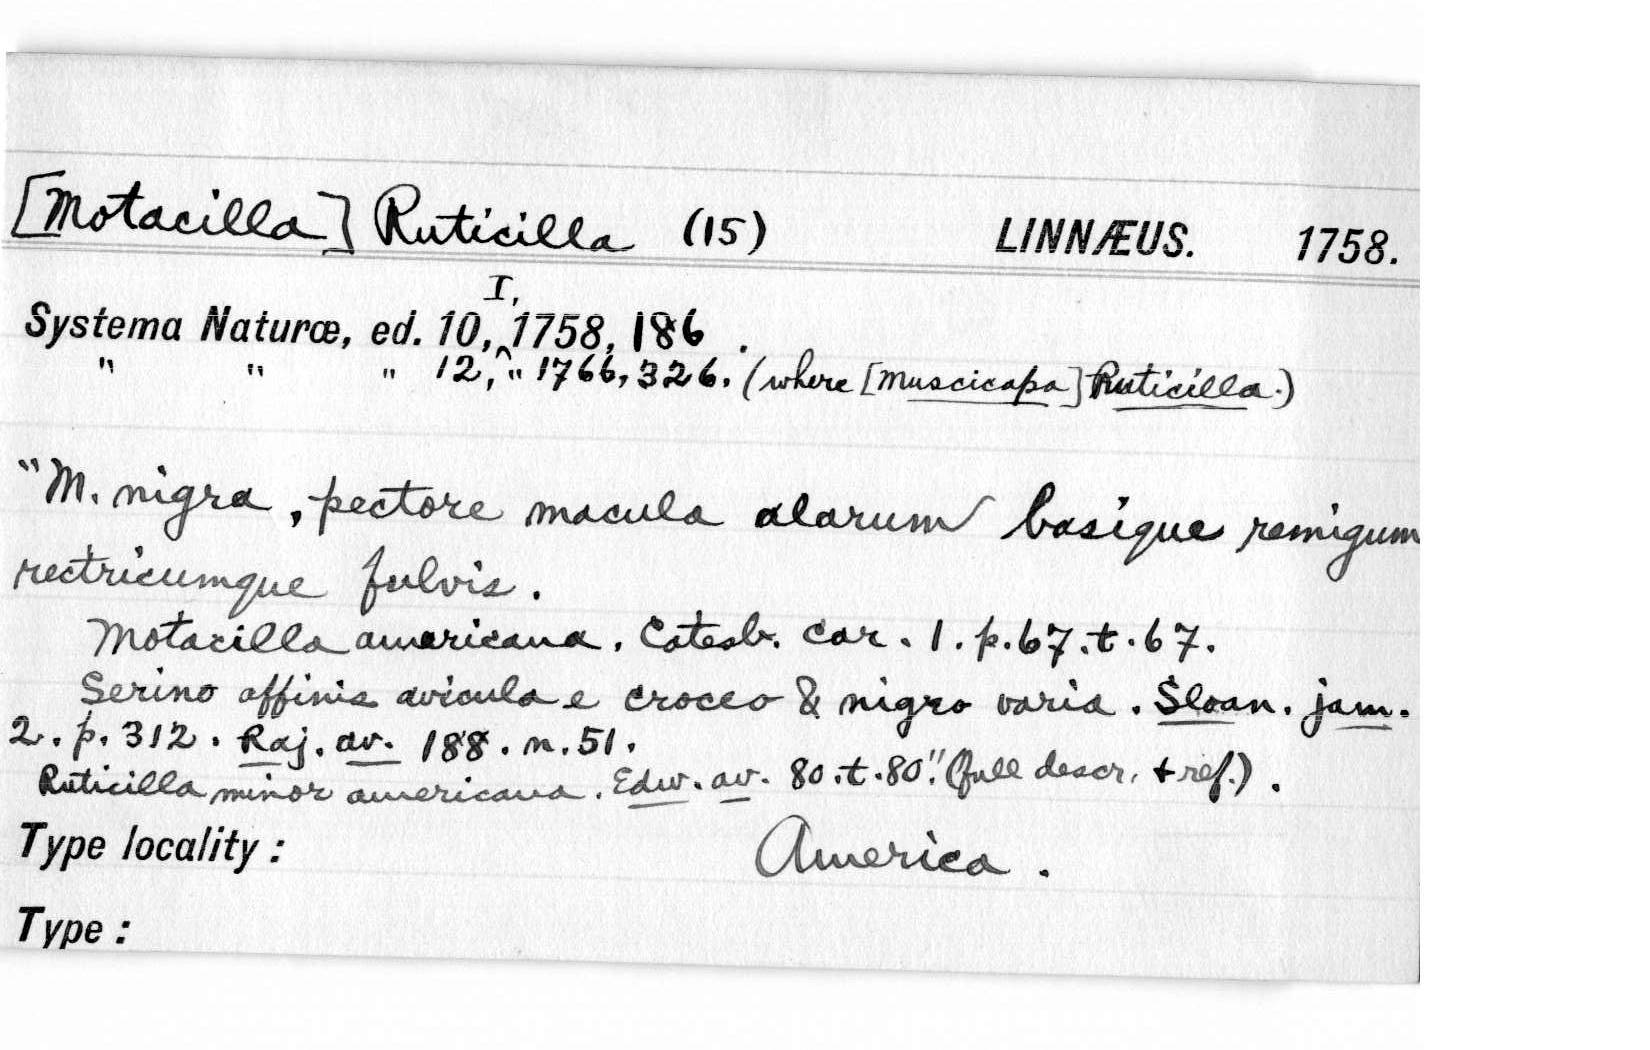 [Motacilla] Ruticilla (15) LINNÆUS. 1758.
I,
Systema Naturæ, ed. 10,^1758, 186.
" " " 12, " 1766, 326. (where [Muscicapa] Ruticilla.)
"M. nigra, pectore macula alarum basique remigum
rectricumque fulvis.
Motacilla americana. Catesb. car. 1. p. 67. t. 67.
Serino affinis avicula e croceo & nigro varia. Sloan. jam.
2. p. 312. Raj. av. 188. n. 51.
Ruticilla minor americana. Edw. av. 80. t. 80." (full descr. + ref.).
Type locality: America.
Type: